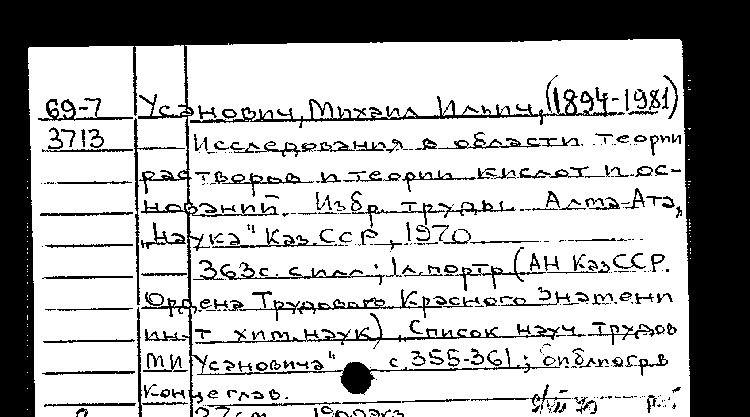 69-7 Усанович, Михаил Ильич, (1894-1981)
3713 Исследования в области теории
растворов и теории кислот и ос-
нований. Избр. труды. Алма-Ата,
"Наука" Каз.ССР, 1970
363с. с илл; 1л. портр (АН КазССР.
Ордена Трудового Красного Знамени
ин-т хим. наук) „Список науч. трудов
МИ Усановича" с 355-361.; библиогр. в
конце глав.
27см 1900экз